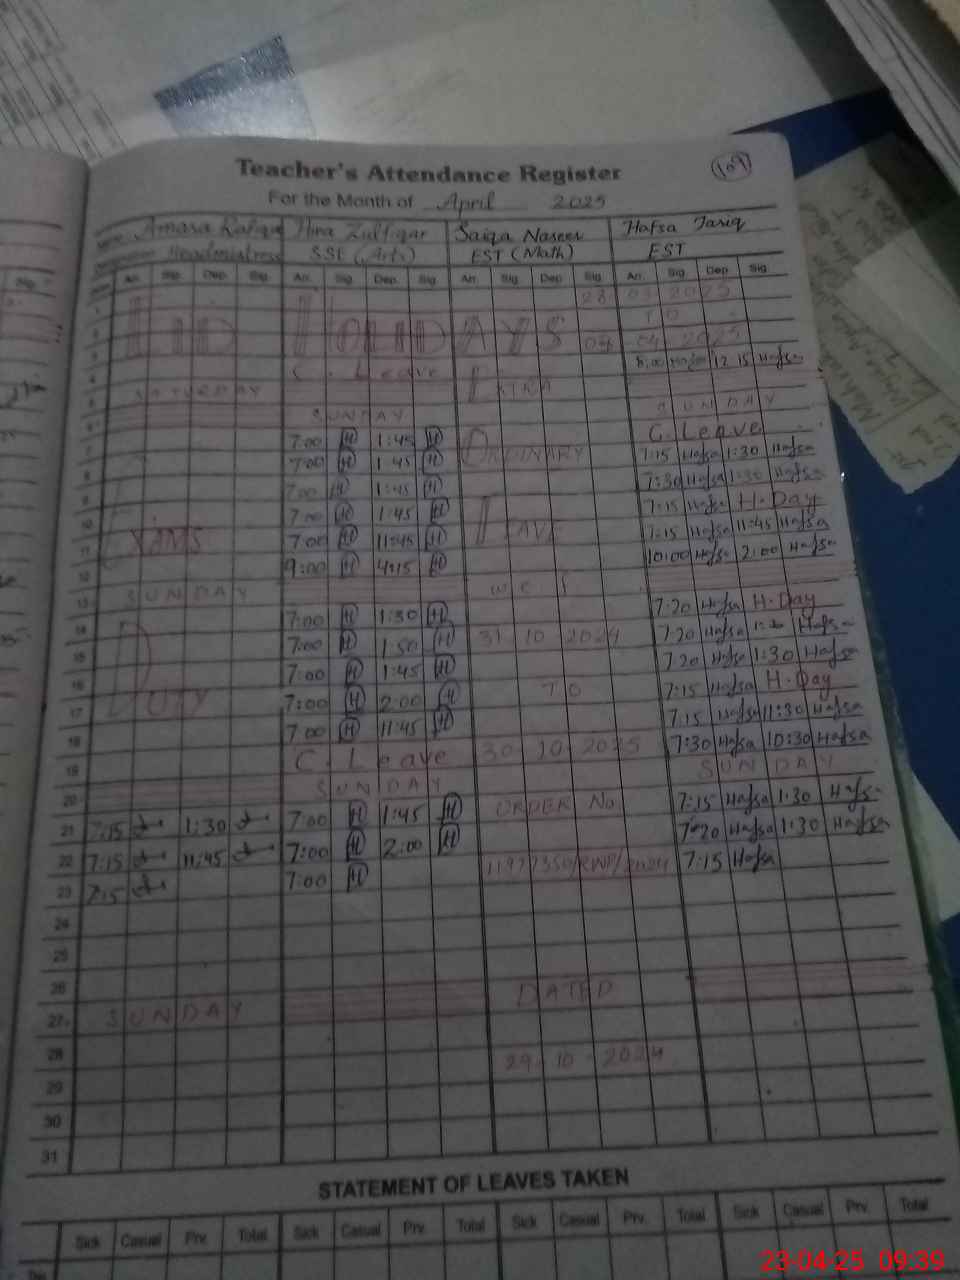 Teacher's Attendance Register
109
For the Month of April 2025
Hina Zulfiqar Saiqa Naseer Hafsa Tariq
Headmistress SSE (Arts) EST (Math) EST
Arr. Sig. Dep. Sig. Arr. Sig. Dep. Sig. Arr. Sig. Dep. Sig. Arr. Sig. Dep. Sig.
1 28 03 2025
2 HOLIDAYS TO
3 04 04 2025
4 C. Leave EXTRA 8:00 Hafsa 12:15 Hafsa
5 SATURDAY
6 SUNDAY SUNDAY
7 7:00 H 1:45 H ORDINARY C. Leave
8 7:00 H 1:45 H 7:15 Hafsa 1:30 Hafsa
9 7:00 H 1:45 H 7:30 Hafsa 1:30 Hafsa
10 EXAMS 7:00 H 1:45 H LEAVE 7:15 Hafsa H. Day
11 7:00 H 11:45 H 7:15 Hafsa 11:45 Hafsa
12 9:00 H 4:15 H 10:00 Hafsa 2:00 Hafsa
13 SUNDAY w e f
14 7:00 H 1:30 H 7:20 Hafsa H. Day
15 7:00 H 1:50 H 31 10 2024 7:20 Hafsa Hafsa
16 DUTY 7:00 H 1:45 H 7:20 Hafsa 1:30 Hafsa
17 7:00 H 2:00 H TO 7:15 Hafsa H. Day
18 7:00 H 11:45 H 7:15 Hafsa 11:30 Hafsa
19 C. Leave 30 10 2025 7:30 Hafsa 10:30 Hafsa
20 SUNDAY SUNDAY
21 7:15 1:30 7:00 H 1:45 H ORDER No 7:15 Hafsa 1:30 Hafsa
22 7:15 11:45 7:00 H 2:00 H 7:20 Hafsa 1:30 Hafsa
23 7:15 7:00 H 7:15 Hafsa
24
25
26 DATED
27 SUNDAY
28 29 - 10 - 2024
29
30
31
STATEMENT OF LEAVES TAKEN
Sick Casual Prv. Total Sick Casual Prv. Total Sick Casual Prv. Total Sick Casual Prv. Total
23-04-25 09:39